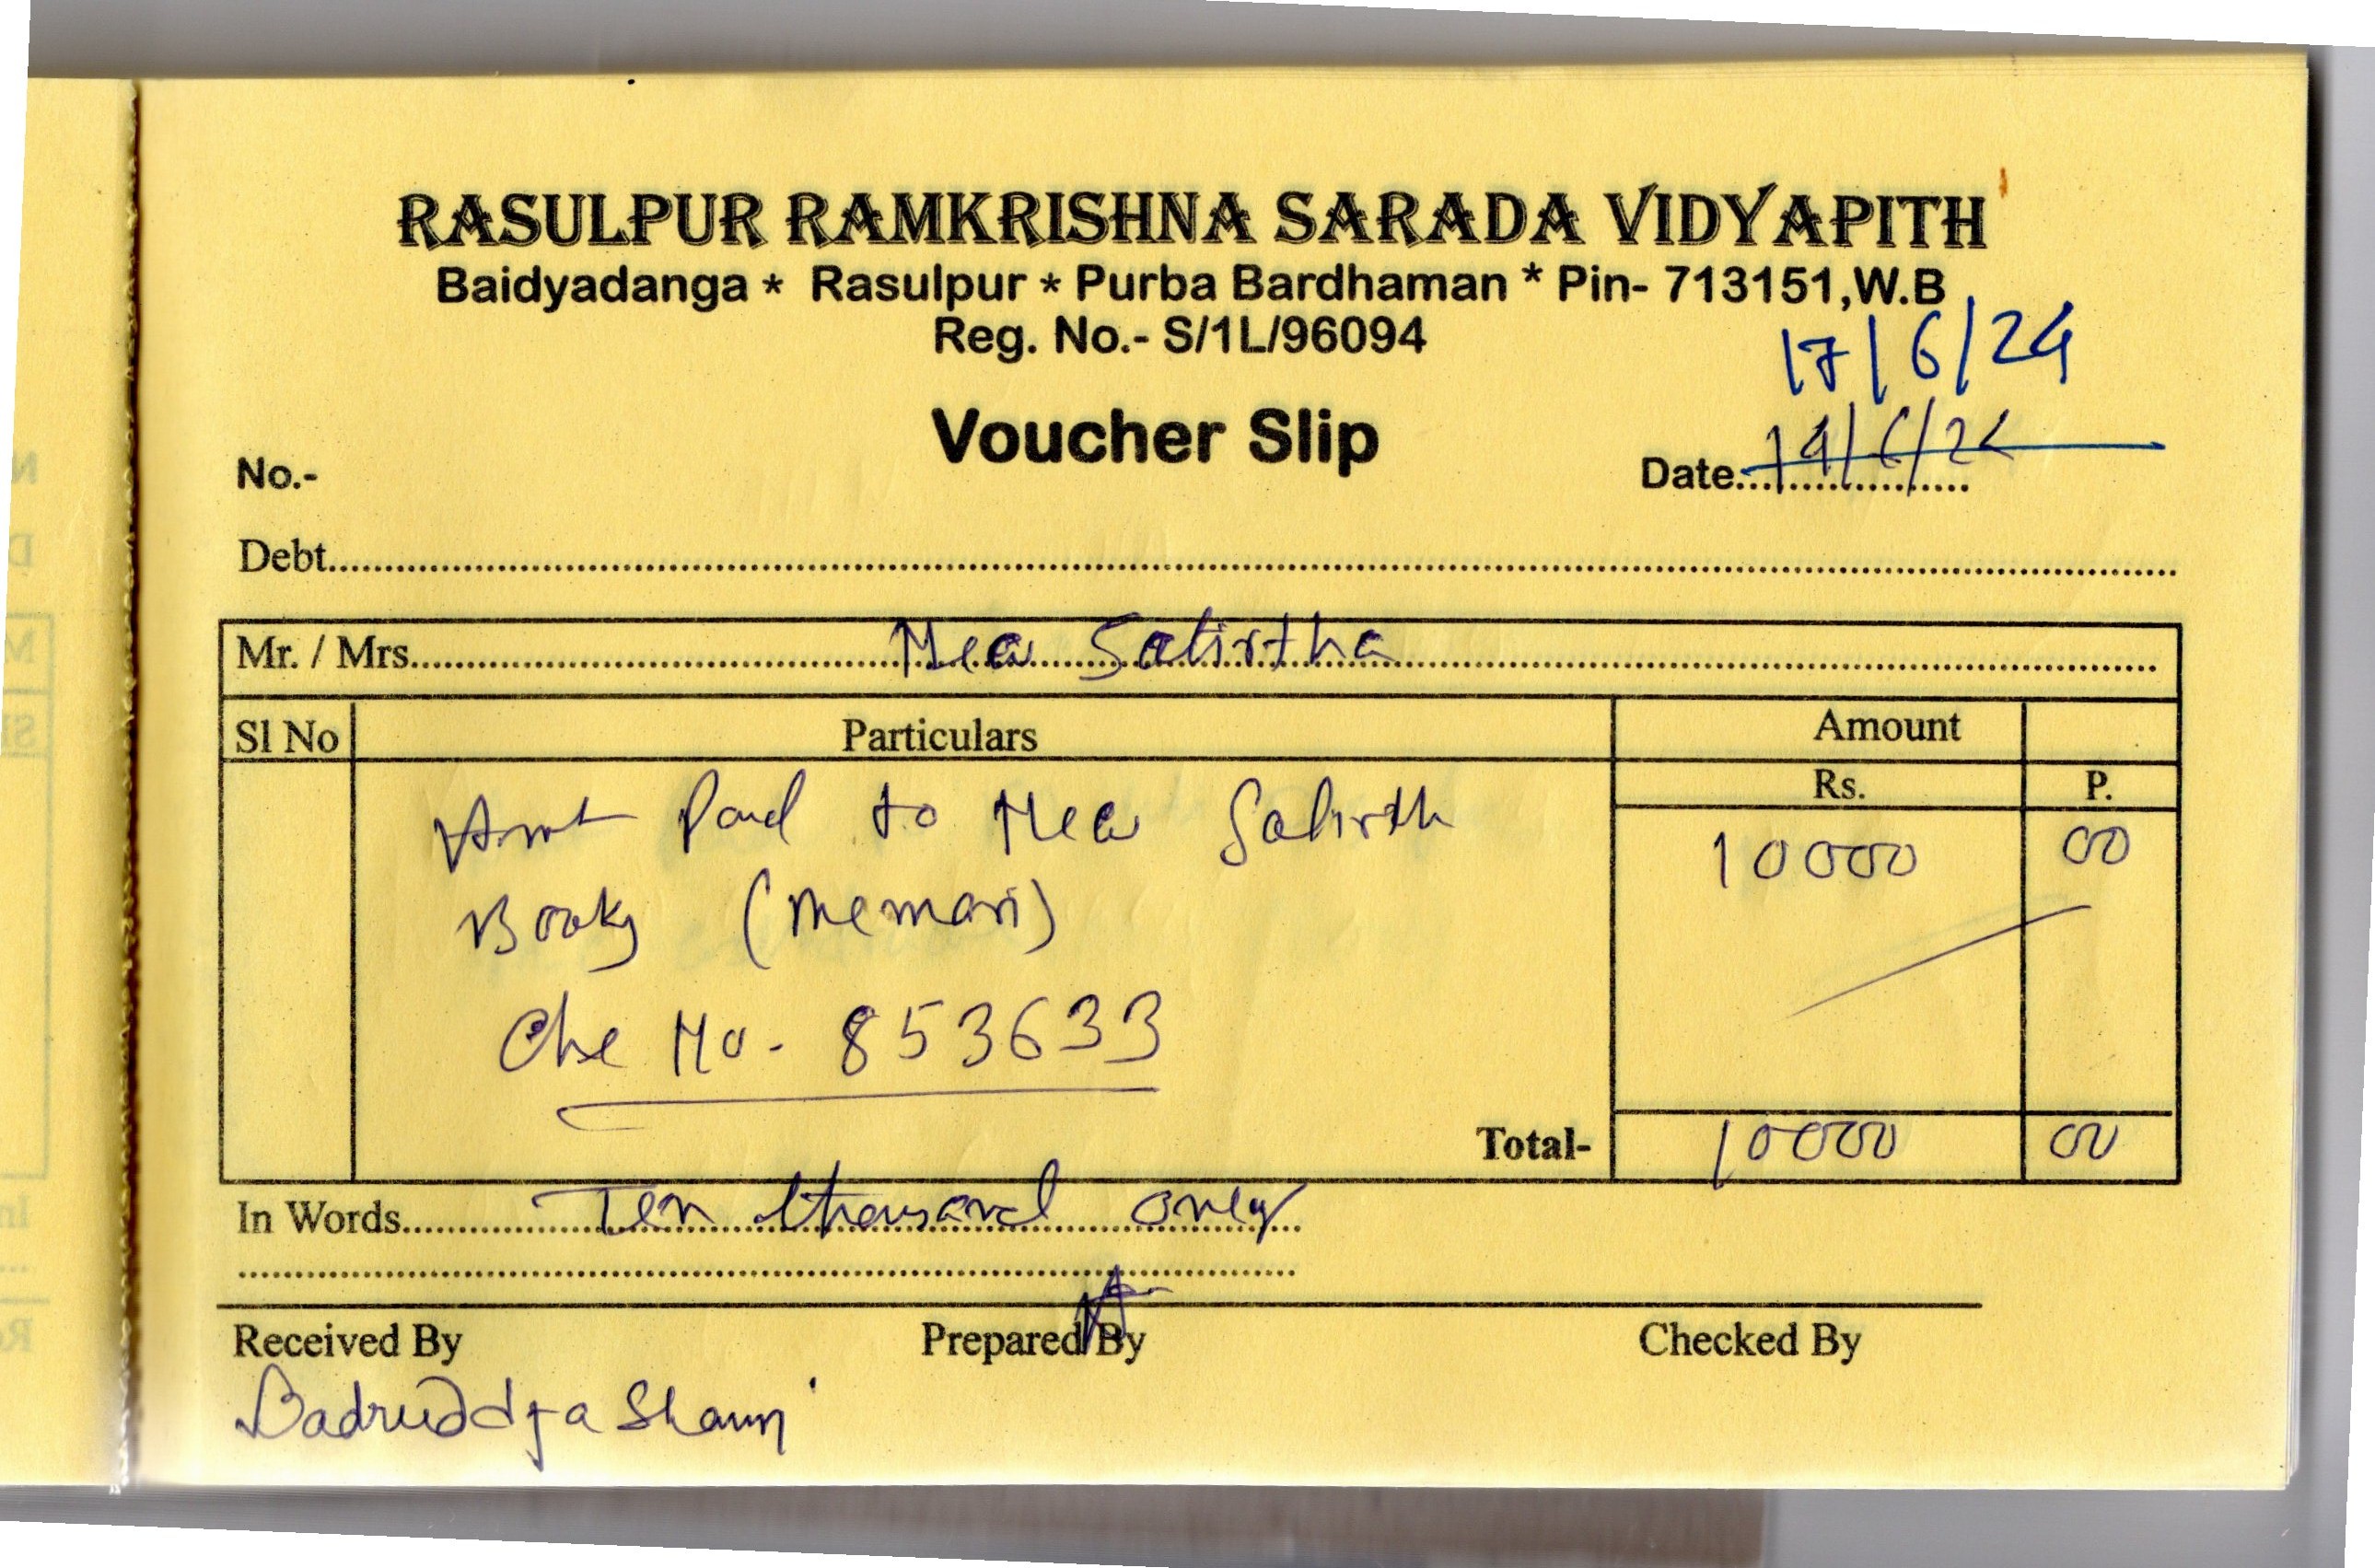 RASULPUR RAMKRISHNA SARADA VIDYAPITH
Baidyadanga * Rasulpur * Purba Bardhaman * Pin- 713151,W.B
Reg. No.- S/1L/96094
17/6/24
Voucher Slip
No.-
Date....................
Debt....................
Mr. / Mrs. Mea Satirtha
Sl No Particulars Amount
Rs. P.
Amt Paid to Mea Satirth 10000 00
Books (Memari)
Che No. 853633
Total- 10000 00
In Words Ten thousand only
Received By Prepared By Checked By